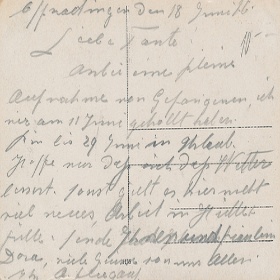 den 18 Juni 16.
Liebe Tante
10 –
Anbei eine kleine
Aufnahme von Gefangenen, ich
am 11 Juni gehollt haben.
bin bis 29 Juni in Urlaub.
Hoffe nur das sich das Wetter
bessert. sonst gibt es hier nicht
viel neues, Arbeit in Hülle
fülle. sende
Dora, viele Grüsse von uns Allen